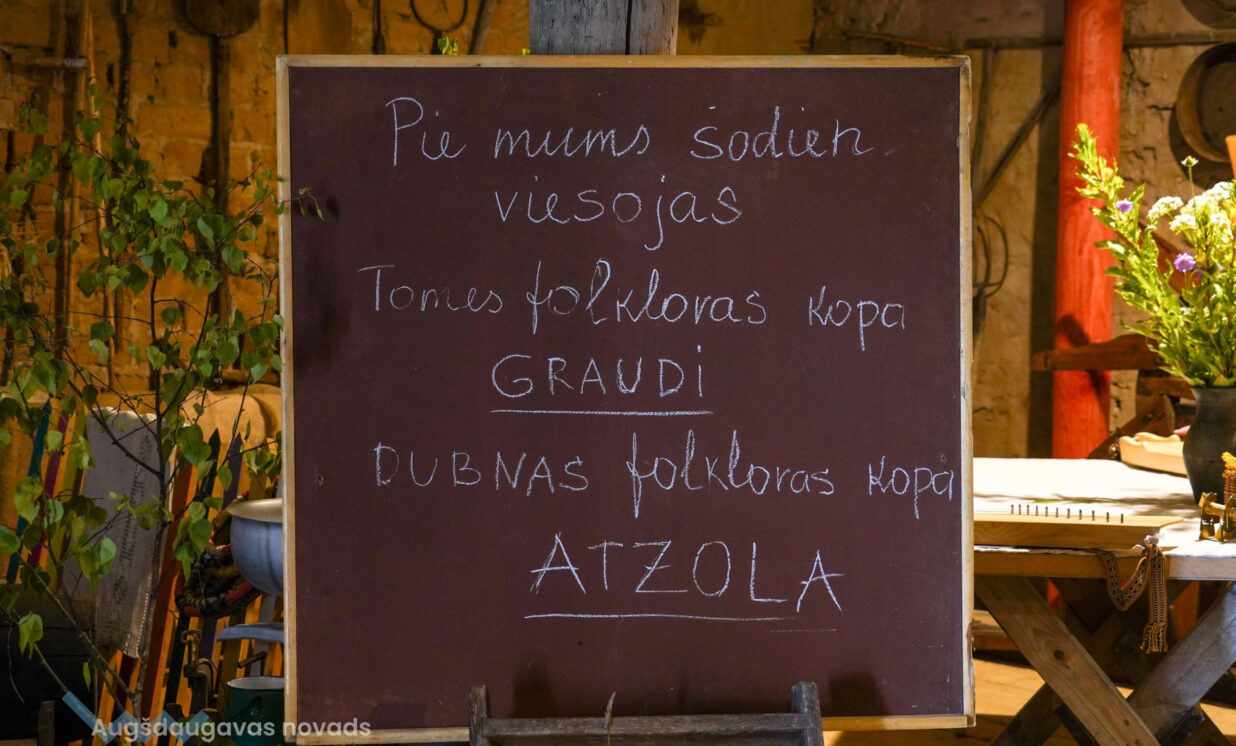 Pie mums šodien
viesojas
Tomes folkloras kopa
GRAUDI
DUBNAS folkloras kopa
ATZOLA
Augšdaugavas novads